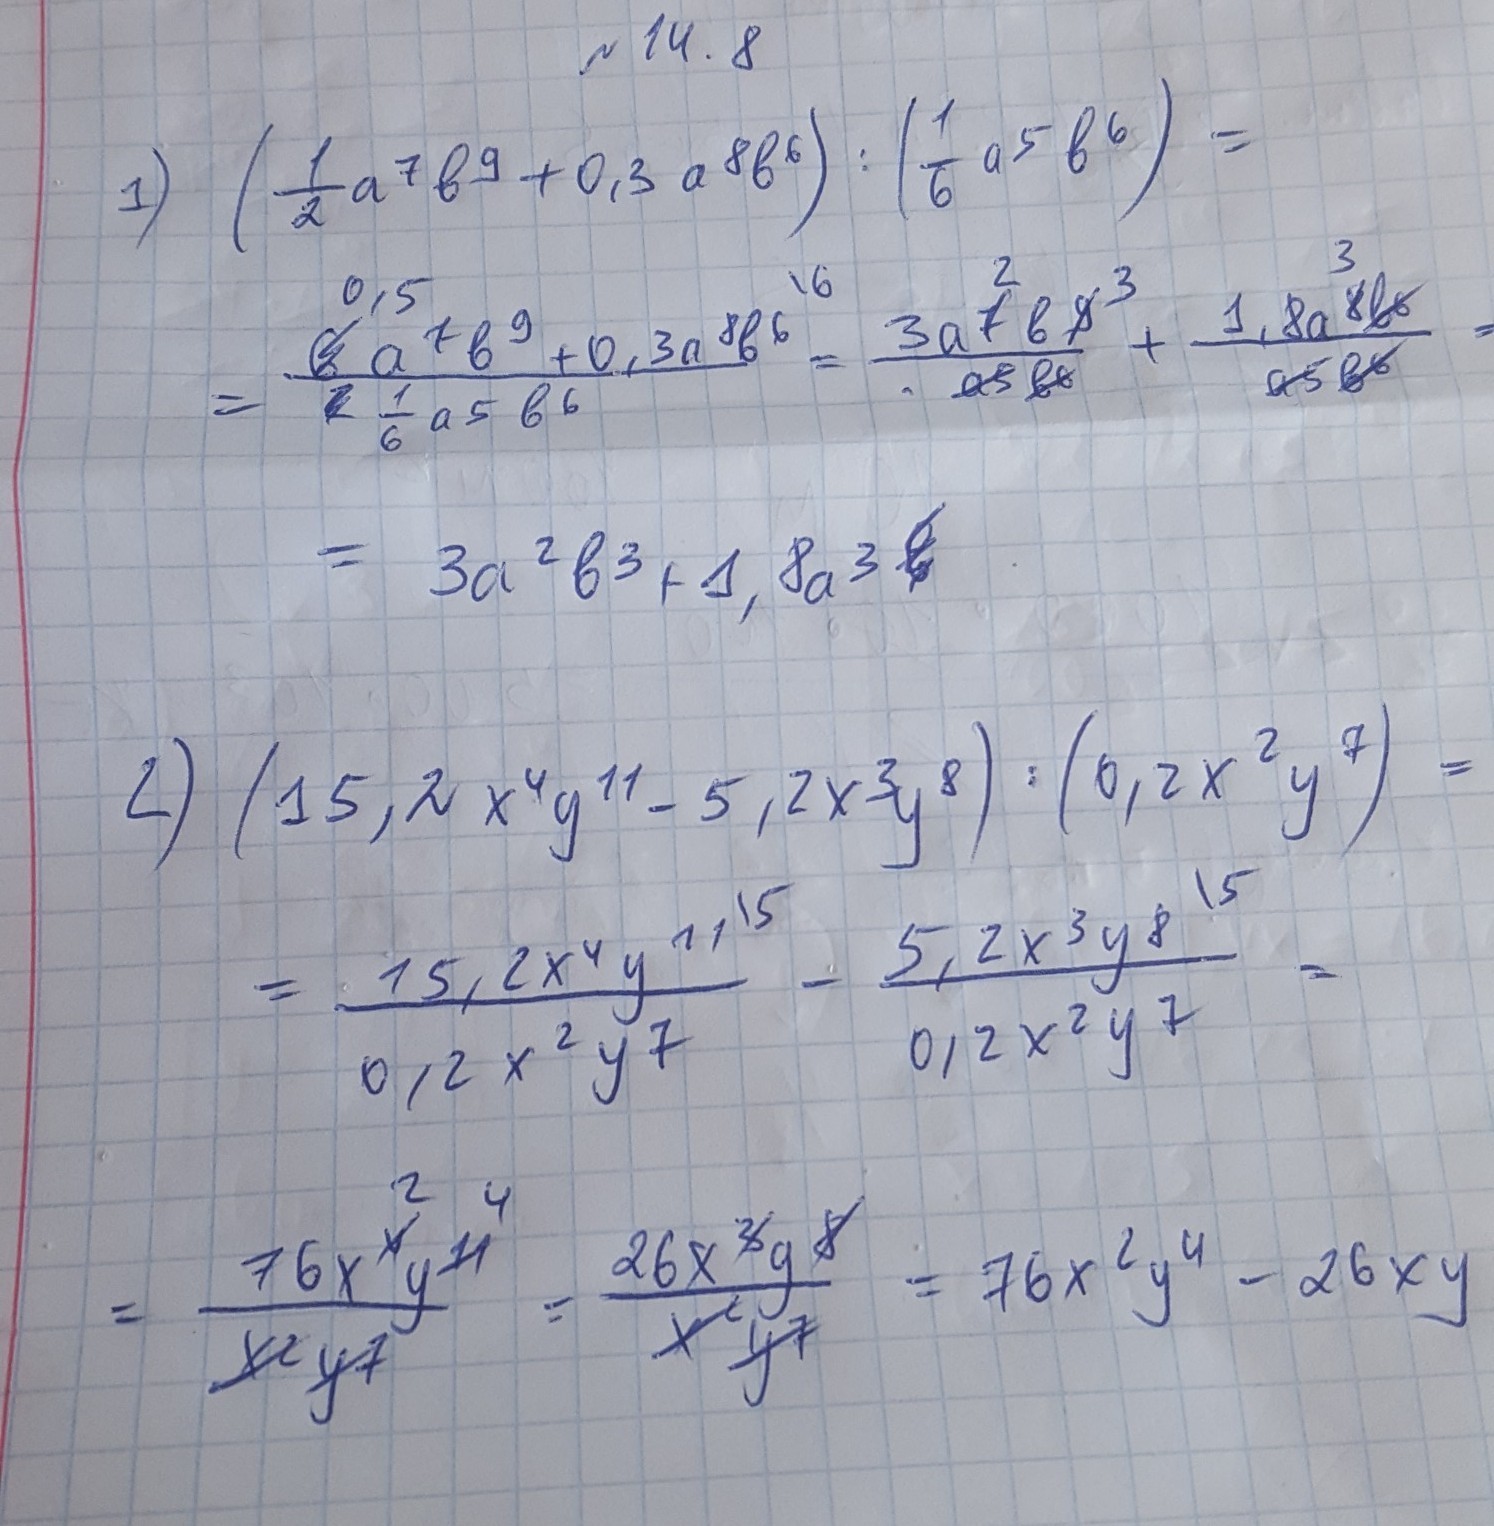 № 14.8
1) (1/2 a⁷b⁹ + 0,3 a⁸b⁶) : (1/6 a⁵b⁶) =
= (0,5 a⁷b⁹ + 0,3a⁸b⁶ \6) / (1/6 a⁵b⁶) = 3a⁷ ² b⁹ ³ / a⁵b⁶ + 1,8a⁸ ³ b⁶ / a⁵b⁶ =
= 3a²b³ + 1,8a³
2) (15,2x⁴y¹¹ - 5,2x³y⁸) : (0,2x²y⁷) =
= 15,2x⁴y¹¹ \5 / 0,2x²y⁷ - 5,2x³y⁸ \5 / 0,2x²y⁷ =
= 76x⁴ ² y¹¹ ⁴ / x²y⁷ = 26x³y⁸ / x²y⁷ = 76x²y⁴ - 26xy